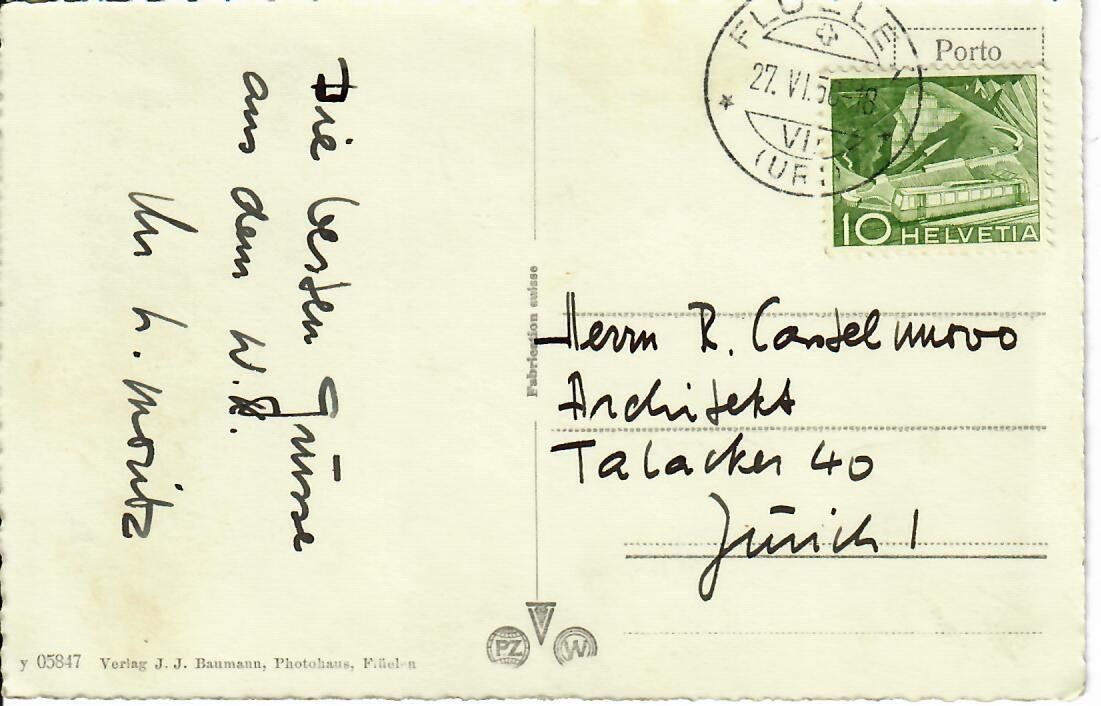 Die besten Grüsse
aus dem W.K.
Ihr H. Moritz
Porto
27. VI. 5
(URI)
10 HELVETIA
Fabrication suisse
Herrn R. Castelnuovo
Architekt
Talacker 40
Zürich 1
PZ
W
y 05847 Verlag J. J. Baumann, Photohaus, Flüelen